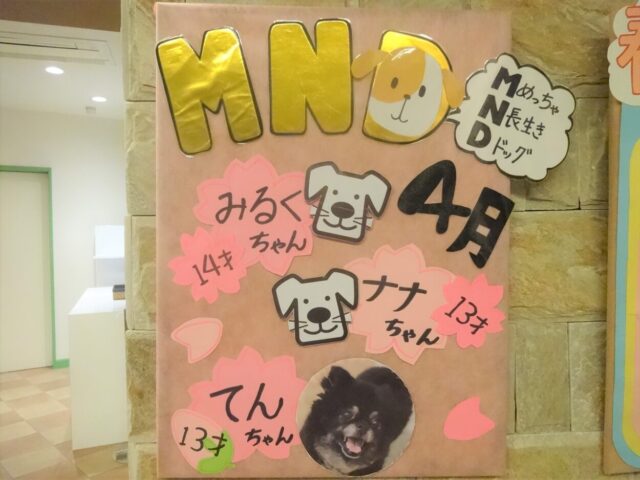 MND
Mめっちゃ
N長生き
Dドッグ
4月
みるく
ちゃん
14才
ナナ
ちゃん
13才
てん
ちゃん
13才